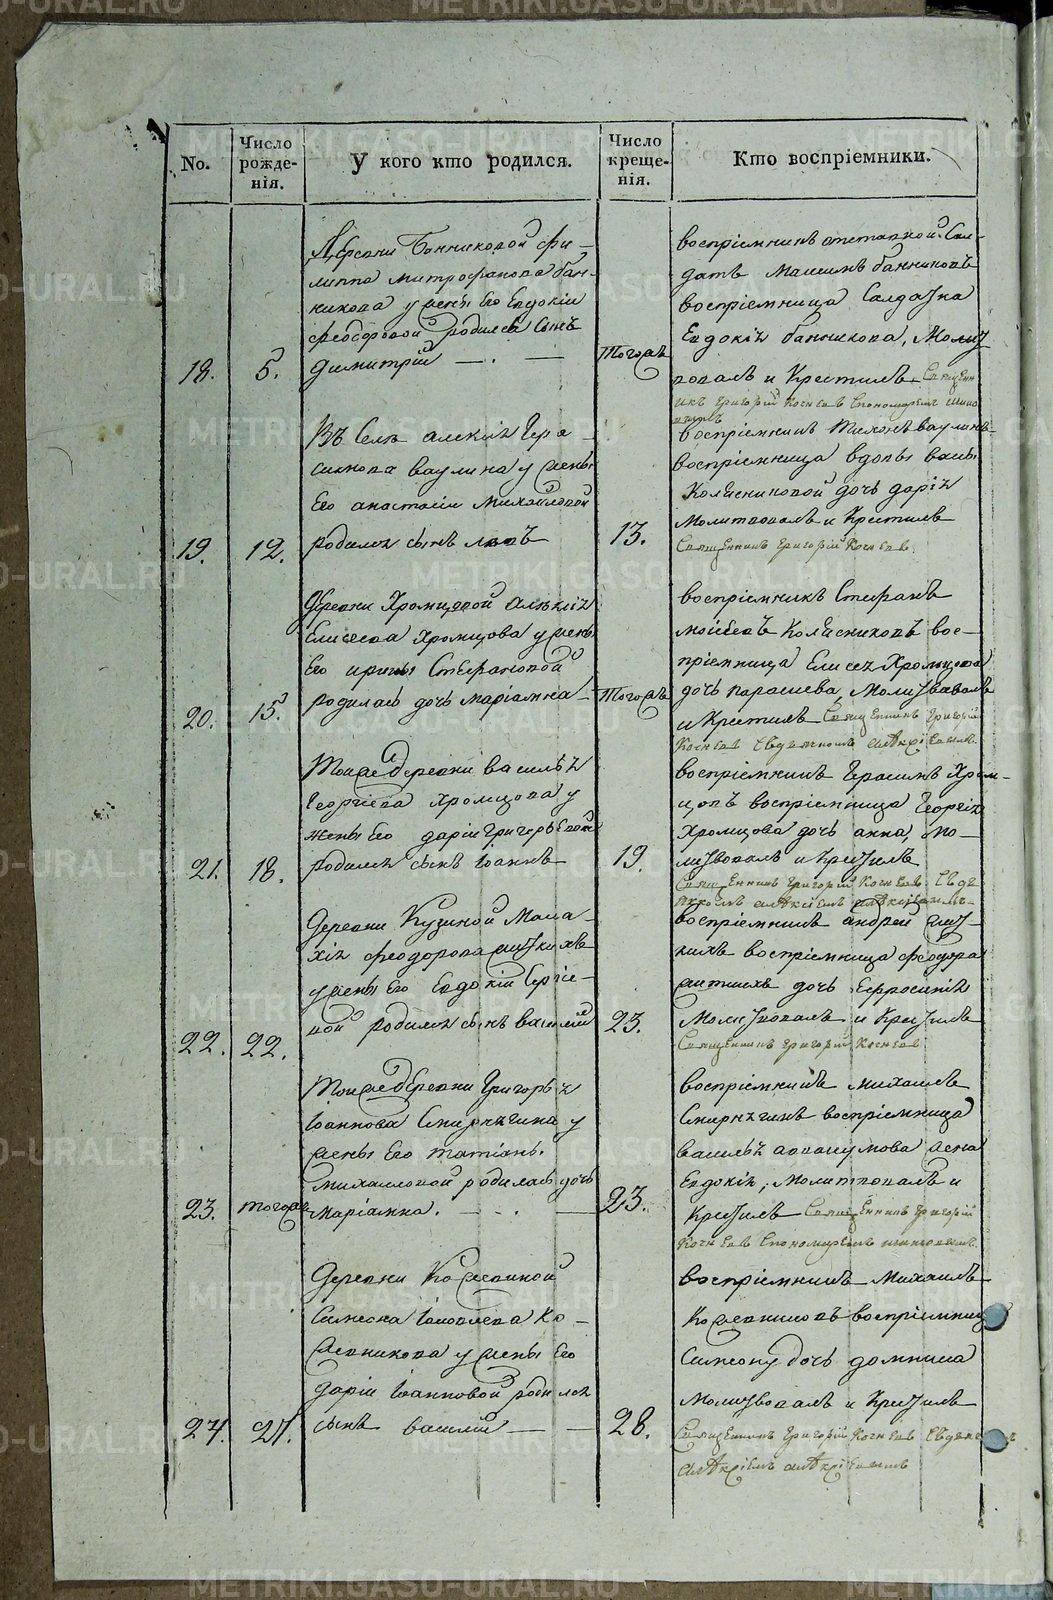 No.
Число рожде-нія.
У кого кто родился.
Число креще-нія.
Кто воспріемники.
18.
5.
Деревни Банниковой Фи-
липпа Митрофанова Бан-
никова у жены Его Евдокіи
Феодоровой родился сынъ
Димитрій
Тогожъ
воспріемникъ отставной Сал-
датъ Максимъ банниковъ
воспріемница Салдатка
Евдокія банникова, Молит
вовалъ и Крестилъ Священн
икъ Григорій Пономаремъ
19.
12.
Въ Селѣ алексія Гера-
симова ваулина у жены
Его анастасіи Михайловой
родился сынъ Левъ
13.
воспріемникъ Тихонъ ваулинъ
воспріемница вдовы
Колясниковой дочь дарія
Молитвовалъ и Крестилъ
Священникъ Григорій
20.
15.
Деревни Хромцовой алексія
Елисеева Хромцова у жены
Его ирины Стефановой
родилась дочь маріамна
Тогожъ
воспріемникъ Стефанъ
Колясниковъ вос-
пріемница Елисея Хромцова
дочь параскева, Молитвовалъ
и Крестилъ Священникъ Григорій
21.
18.
Тойже деревни василья
Георгіева Хромцова у
жены Его даріи Григорьевой
родился сынъ Іоаннъ
19.
воспріемникъ Герасимъ Хром-
цовъ воспріемница Георгія
Хромцова дочь анна, Мо-
литвовалъ и Крестилъ
Священникъ Григорій
22.
22.
Деревни Кузиной Мала-
хія феодорова
у жены Его Евдокіи Сергіе-
вой родился сынъ василій
23.
воспріемникъ андрей
воспріемница феодора
дочь Ефросинія
Молитвовалъ и Крестилъ
Священникъ Григорій
23.
тогожъ
Тойже деревни Григорья
Іоаннова Смирнягина у
жены Его татіаны
михаиловой родилась дочь
Маріамна.
23.
воспріемникъ михаилъ
Смирнягинъ воспріемница
василья жена
Евдокія, Молитвовалъ и
Крестилъ Священникъ Григорій
24.
27.
Деревни Кожевиной
Симеона Іаковлева Ко-
жевникова у жены Его
даріи Іоанновой родился
сынъ василій
28.
воспріемникъ Михаилъ
Кожевниковъ воспріемниц
Симеону дочь домника
Молитвовалъ и Крестилъ
Священникъ Григорій
METRIKI.GASO-URAL.RU